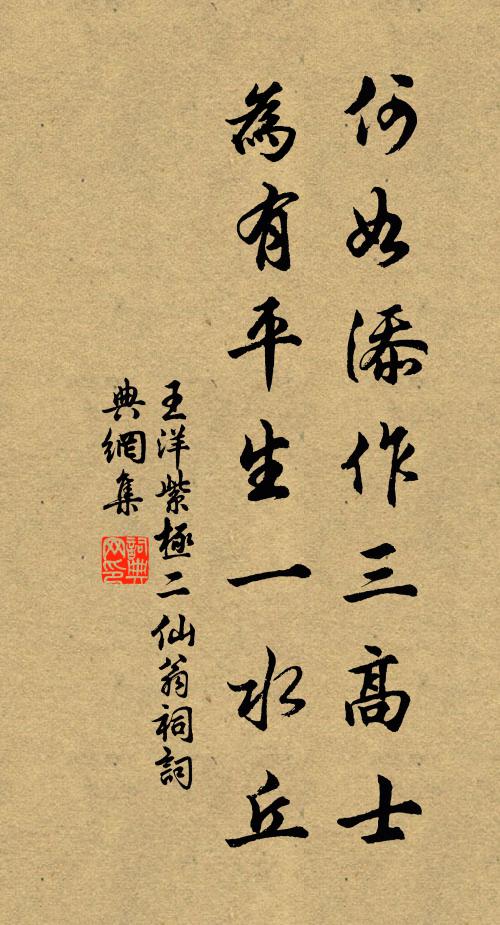 何如添作三高士
為有平生一水丘
王洋紫極二仙翁祠詞
典網集
詞典
网印